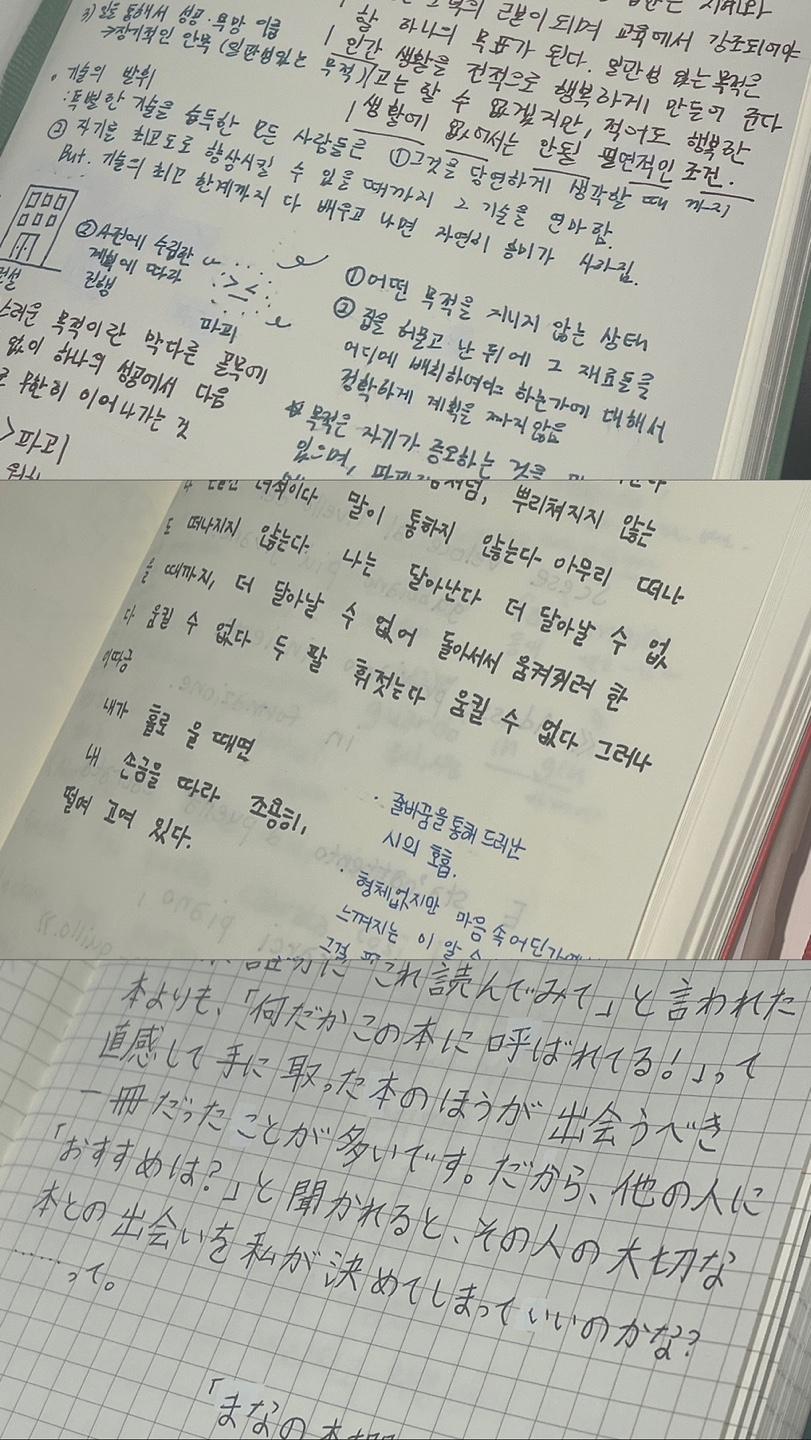 지혜와
근본이 되며 교육에서 강조되어야
할 하나의 목표가 된다. 일관성 있는 목적은
인간 생활을 전적으로 행복하게 만들어 준다
고는 할 수 없겠지만, 적어도 행복한
생활에 없어서는 안될 필연적인 조건.
3) 일을 통해서 성공·욕망 이룸
→장기적인 만족 (일관성있는 목적)
기술의 발휘
: 특별한 기술을 습득한 모든 사람들은 ①그것을 당연하게 생각할 때 까지
② 자기를 최고도로 향상시킬 수 있을 때까지 그 기술을 연마함.
But. 기술의 최고 한계까지 다 배우고 나면 자연히 흥미가 사라짐.
건설
②사전에 수립한
계획에 따라
진행
파괴
①어떤 목적을 지니지 않는 상태
② 집을 허물고 난 뒤에 그 재료들을
어디에 배치하여야 하는가에 대해서
정확하게 계획을 짜지 않음
스러운 목적이란 막다른 골목에
없이 하나의 성공에서 다음
로 무한히 이어나가는 것
>파괴
목적은 자기가 증오하는 것을
있으며,
녀석이다 말이 통하지 않는다 아무리 떠나
도 떠나지지 않는다. 나는 달아난다 더 달아날 수 없
을 때까지, 더 달아날 수 없어 돌아서서 움켜쥐려 한
다 움킬 수 없다 두 팔 휘젓는다 움킬 수 없다 그러나
이따금
내가 홀로 울 때면
내 손금을 따라 조용히,
떨며 고여 있다.
· 줄바꿈을 통해 드러난
시의 호흡.
· 형체없지만 마음 속 어딘가에
느껴지는 이 알 수
그걸
「これ読んでみて」と言われた
本よりも、「何だかこの本に呼ばれてる!」って
直感して手に取った本のほうが出会うべき
一冊だったことが多いです。だから、他の人に
「おすすめは?」と聞かれると、その人の大切な
本との出会いを私が決めてしまっていいのかな?
……って。
「まなの本棚